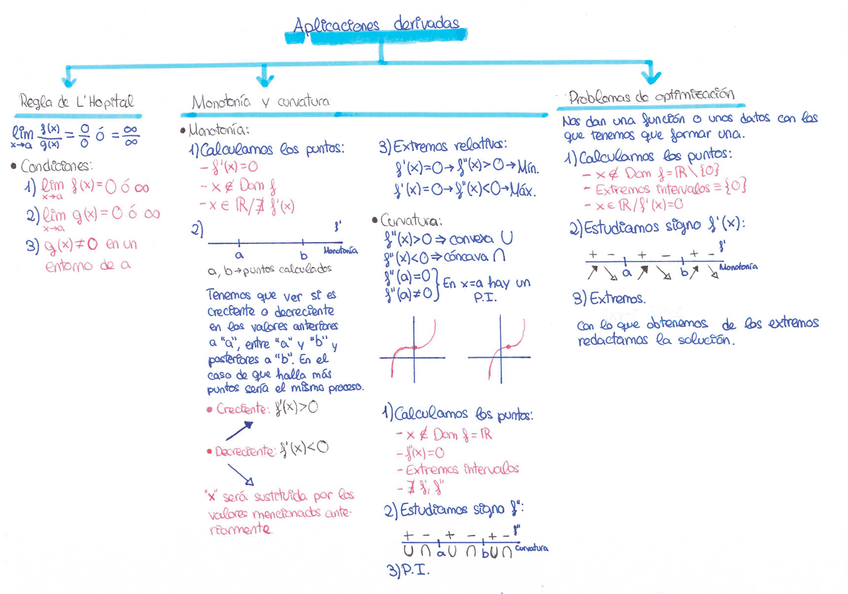 Aplicaciones derivadas
Regla de L'Hopital
lim x→a f(x)/g(x) = 0/0 ó = ∞/∞
• Condiciones:
1) lim x→a f(x) = 0 ó ∞
2) lim x→a g(x) = 0 ó ∞
3) g(x) ≠ 0 en un
entorno de a
Monotonía y curvatura
• Monotonía:
1) Calculamos los puntos:
- f'(x)=0
- x ∉ Dom f
- x ∈ ℝ/∄ f'(x)
2)
f'
a b Monotonía
a, b → puntos calculados
Tenemos que ver si es
creciente o decreciente
en los valores anteriores
a "a", entre "a" y "b" y
posteriores a "b". En el
caso de que halla más
puntos sería el mismo proceso.
• Creciente: f'(x)>0
• Decreciente: f'(x)<0
"x" será sustituida por los
valores mencionados ante-
riormente
3) Extremos relativos:
f'(x)=0 → f''(x)>0 → Mín.
f'(x)=0 → f''(x)<0 → Máx.
• Curvatura:
f''(x)>0 ⇒ convexa ∪
f''(x)<0 ⇒ cóncava ∩
f''(a)=0
f'''(a)≠0 } En x=a hay un
P.I.
1) Calculamos los puntos:
- x ∉ Dom f = ℝ
- f''(x)=0
- Extremos intervalos
- ∄ f', f''
2) Estudiamos signo f'':
+ - + - + - f''
∪ ∩ a ∪ ∩ b ∪ ∩ Curvatura
3) P.I.
Problemas de optimización
Nos dan una función o unos datos con los
que tenemos que formar una.
1) Calculamos los puntos:
- x ∉ Dom f = ℝ \ {0}
- Extremos intervalos = {0}
- x ∈ ℝ / f'(x)=0
2) Estudiamos signo f'(x):
+ - + - + - f'
↗ ↘ a ↗ ↘ b ↗ ↘ Monotonía
3) Extremos.
Con lo que obtenemos de los extremos
redactamos la solución.